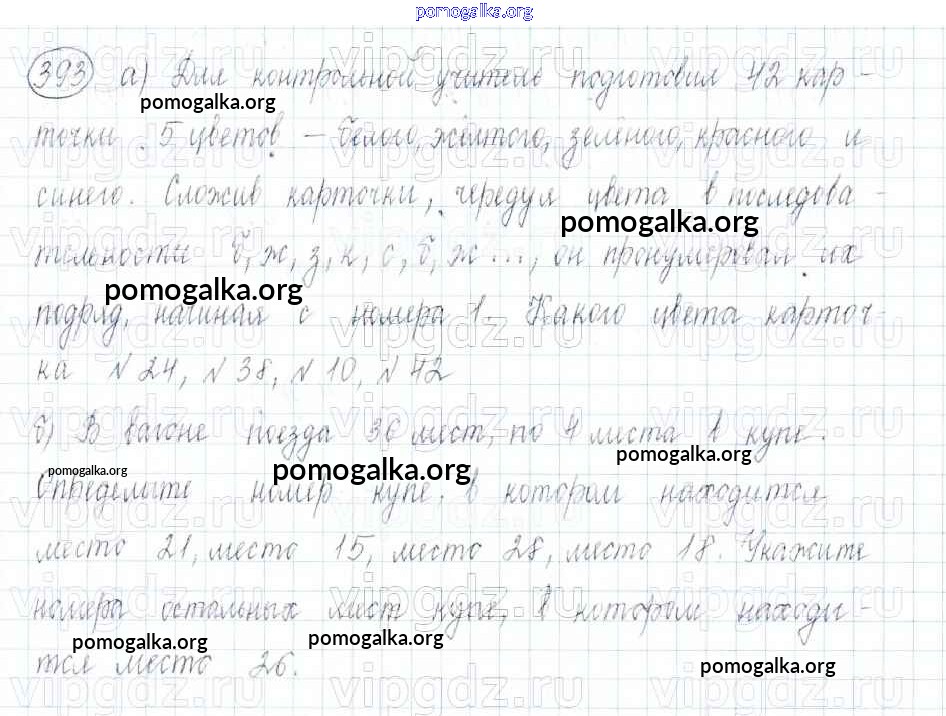 pomogalka.org
393 а) Для контрольной учитель подготовил 42 кар -
pomogalka.org
точки 5 цветов – белого, жёлтого, зелёного, красного и
синего. Сложив карточки, чередуя цвета в последова -
pomogalka.org
тельности б, ж, з, к, с, б, ж ..., он пронумеровал их
pomogalka.org
подряд, начиная с номера 1. Какого цвета карточ-
ка №24, №38, №10, №42
vipgdz.ru
б) В вагоне поезда 36 мест, по 4 места в купе.
pomogalka.org
pomogalka.org pomogalka.org
Определите номер купе, в котором находится
место 21, место 15, место 28, место 18. Укажите
номера остальных мест купе, в котором находи -
pomogalka.org pomogalka.org
тся место 26.
pomogalka.org